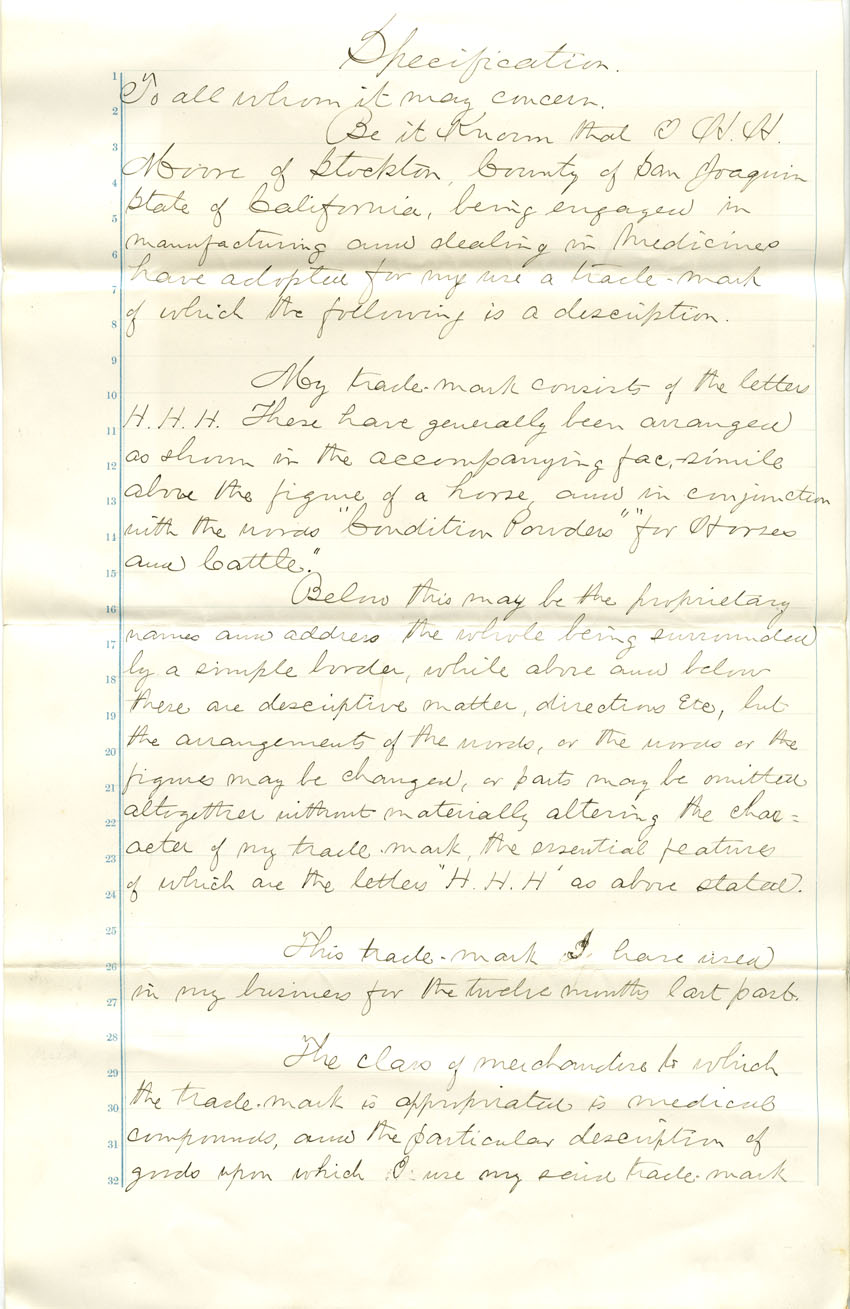 Specification.
1
To all whom it may concern.
2
Be it Known that I H. H.
3
Moore of Stockton, County of San Joaquin
4
State of California, being engaged in
5
manufacturing and dealing in Medicines
6
have adopted for my use a trade-mark
7
of which the following is a description.
8
9
My trade-mark consists of the letters
10
H. H. H. These have generally been arranged
11
as shown in the accompanying fac-simile
12
above the figure of a horse, and in conjunction
13
with the words "Condition Powders" "for Horses
14
and Cattle."
15
Below this may be the proprietary
16
names and address the whole being surrounded
17
by a simple border, while above and below
18
these are descriptive matter, directions Etc, but
19
the arrangements of the words, or the words or the
20
figures may be changed, or parts may be omitted
21
altogether without materially altering the char=
22
acter of my trade mark, the essential features
23
of which are the letters "H. H. H" as above stated.
24
25
This trade-mark I have used
26
in my business for the twelve months last past.
27
28
The class of merchandise to which
29
the trade-mark is appropriated is medical
30
compounds, and the particular description of
31
goods upon which I use my said trade-mark
32